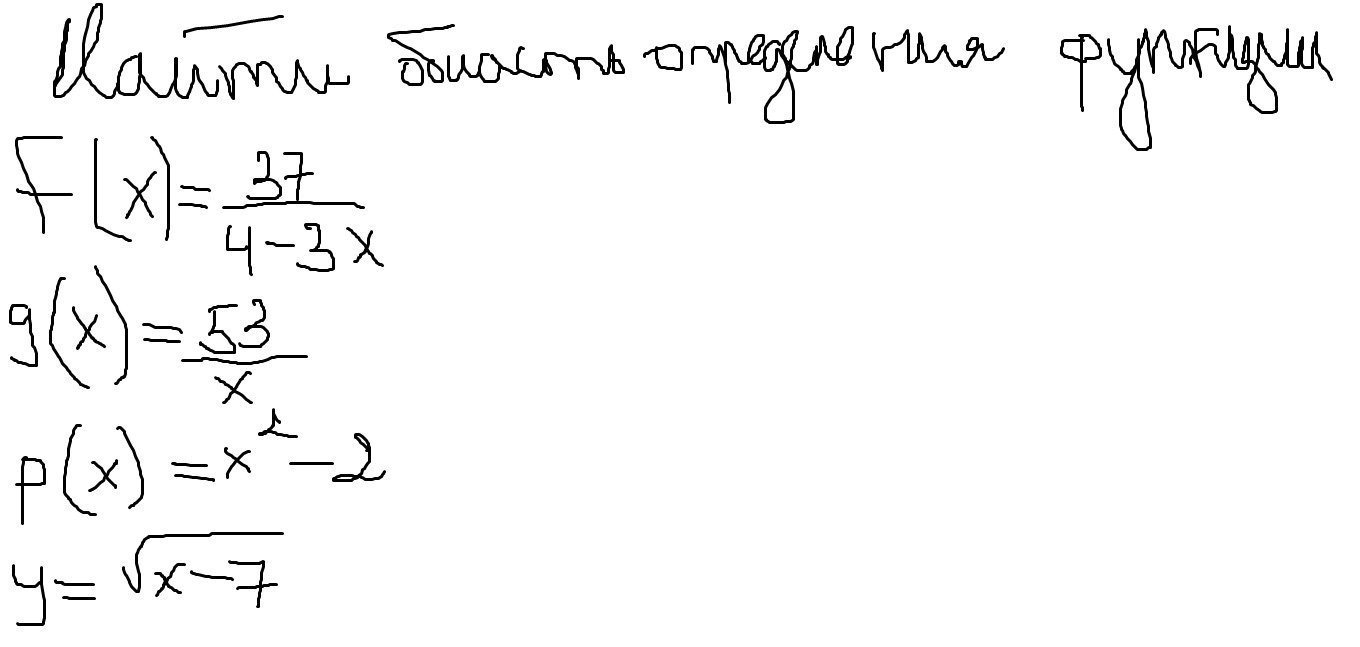 Найти область определения функции
F(x) = 37/(4-3x)
g(x) = 53/x
p(x) = x² - 2
y = √(x-7)